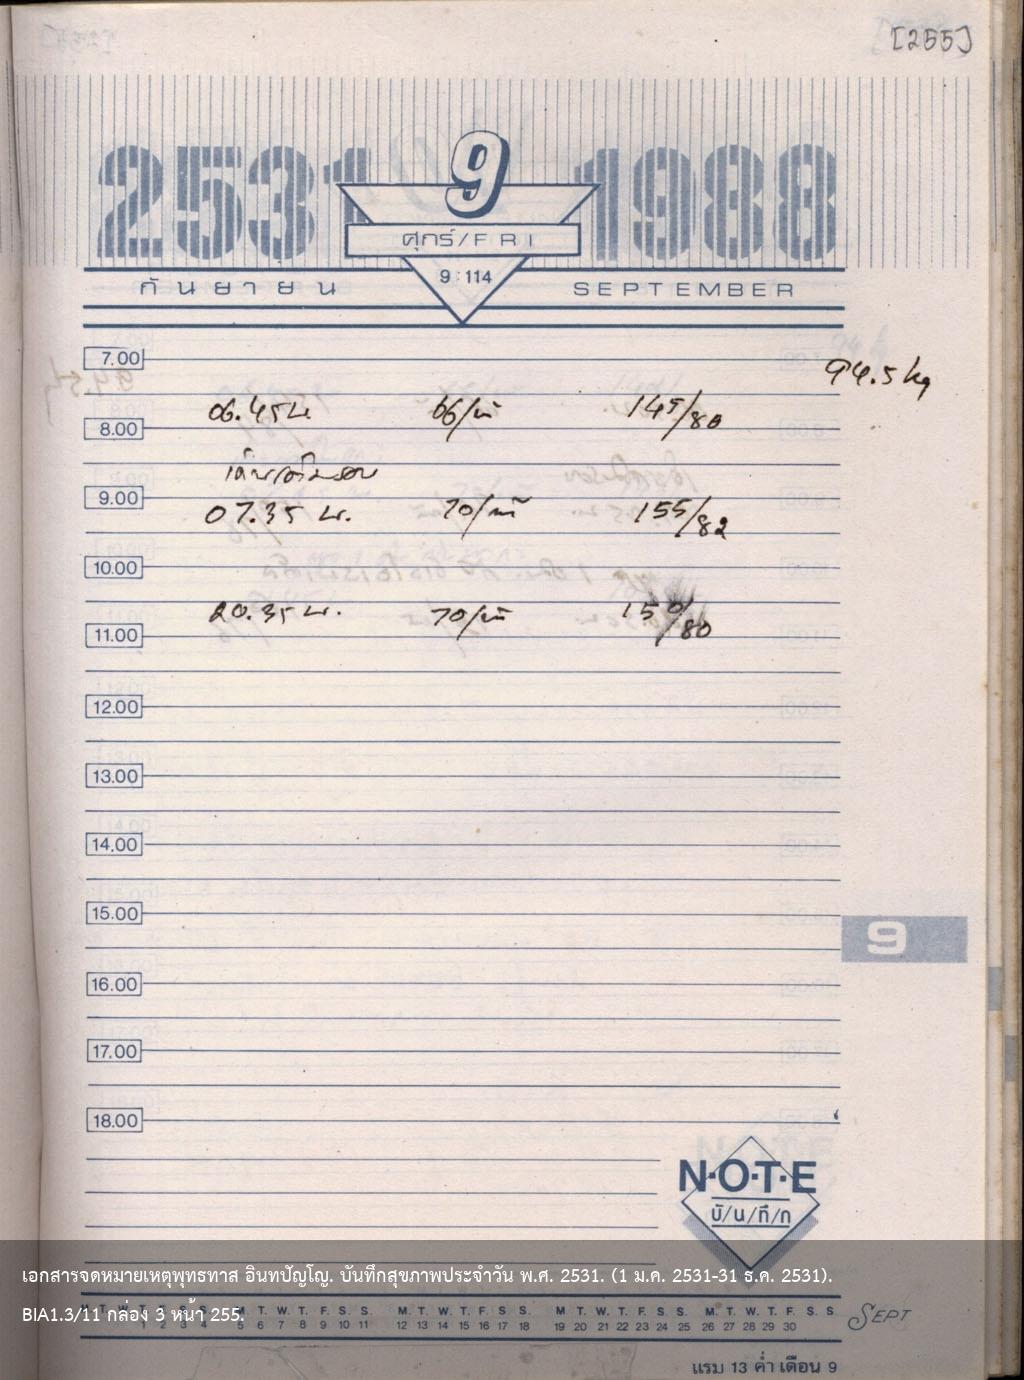 [255]
2531 9 1988
ศุกร์/FRI
9:114
กันยายน SEPTEMBER
7.00
94.5 kg
06.45 น 66/น 145/80
8.00
9.00
07.35 น. 70/น 155/82
10.00
20.35 น. 70/น 150/80
11.00
12.00
13.00
14.00
15.00
9
16.00
17.00
18.00
N·O·T·E
บั/น/ทึ/ก
เอกสารจดหมายเหตุพุทธทาส อินทปัญโญ. บันทึกสุขภาพประจำวัน พ.ศ. 2531. (1 ม.ค. 2531-31 ธ.ค. 2531).
M. T. W. T. F. S. S. M. T. W. T. F. S. S. M. T. W. T. F. S. S. M. T. W. T. F. S. S. M. T. W. T. F. S. S.
BIA1.3/11 กล่อง 3 หน้า 255.
1 2 3 4 5 6 7 8 9 10 11 12 13 14 15 16 17 18 19 20 21 22 23 24 25 26 27 28 29 30
SEPT
แรม 13 ค่ำ เดือน 9